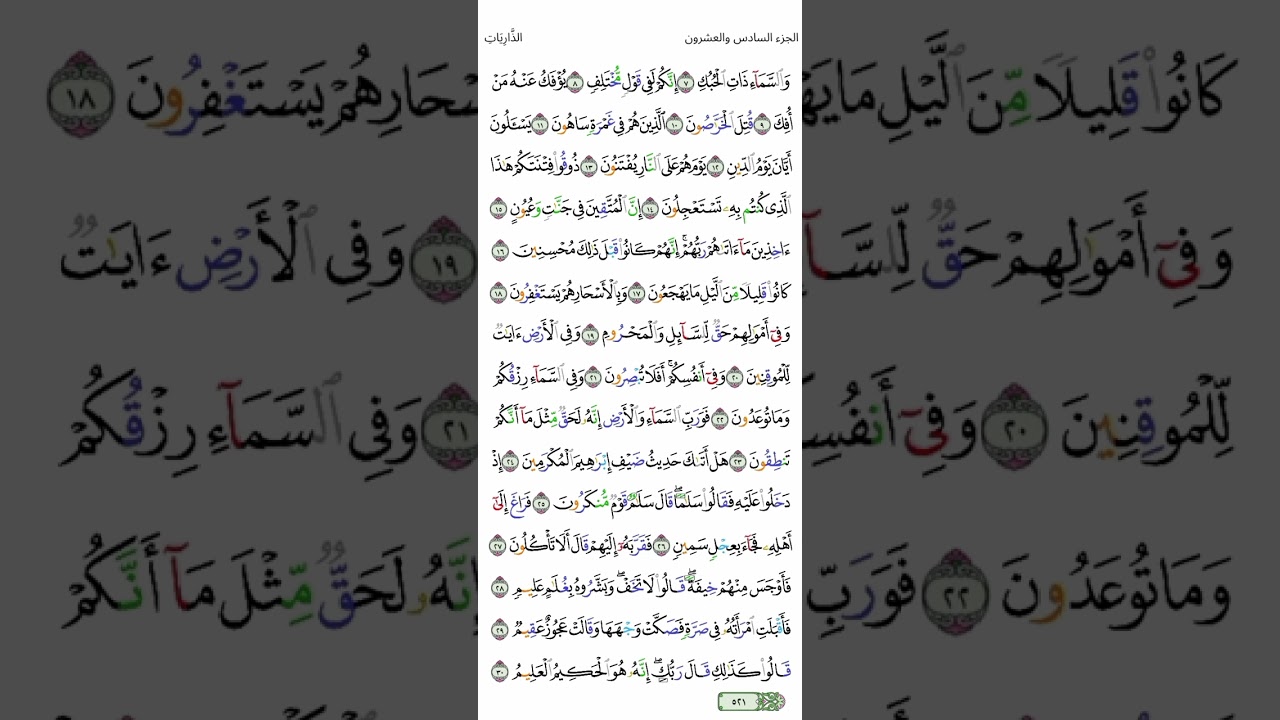 الجزء السادس والعشرون
الذَّارِيَاتِ
وَٱلسَّمَآءِ ذَاتِ ٱلْحُبُكِ ٧ إِنَّكُمْ لَفِى قَوْلٍ مُّخْتَلِفٍ ٨ يُؤْفَكُ عَنْهُ مَنْ
أُفِكَ ٩ قُتِلَ ٱلْخَرَّٰصُونَ ١٠ ٱلَّذِينَ هُمْ فِى غَمْرَةٍ سَاهُونَ ١١ يَسْـَٔلُونَ
أَيَّانَ يَوْمُ ٱلدِّينِ ١٢ يَوْمَ هُمْ عَلَى ٱلنَّارِ يُفْتَنُونَ ١٣ ذُوقُوا۟ فِتْنَتَكُمْ هَٰذَا
ٱلَّذِى كُنتُم بِهِۦ تَسْتَعْجِلُونَ ١٤ إِنَّ ٱلْمُتَّقِينَ فِى جَنَّٰتٍ وَعُيُونٍ ١٥
ءَاخِذِينَ مَآ ءَاتَىٰهُمْ رَبُّهُمْ ۚ إِنَّهُمْ كَانُوا۟ قَبْلَ ذَٰلِكَ مُحْسِنِينَ ١٦
كَانُوا۟ قَلِيلًا مِّنَ ٱلَّيْلِ مَا يَهْجَعُونَ ١٧ وَبِٱلْأَسْحَارِ هُمْ يَسْتَغْفِرُونَ ١٨
وَفِىٓ أَمْوَٰلِهِمْ حَقٌّ لِّلسَّآئِلِ وَٱلْمَحْرُومِ ١٩ وَفِى ٱلْأَرْضِ ءَايَٰتٌ
لِّلْمُوقِنِينَ ٢٠ وَفِىٓ أَنفُسِكُمْ ۚ أَفَلَا تُبْصِرُونَ ٢١ وَفِى ٱلسَّمَآءِ رِزْقُكُمْ
وَمَا تُوعَدُونَ ٢٢ فَوَرَبِّ ٱلسَّمَآءِ وَٱلْأَرْضِ إِنَّهُۥ لَحَقٌّ مِّثْلَ مَآ أَنَّكُمْ
تَنطِقُونَ ٢٣ هَلْ أَتَىٰكَ حَدِيثُ ضَيْفِ إِبْرَٰهِيمَ ٱلْمُكْرَمِينَ ٢٤ إِذْ
دَخَلُوا۟ عَلَيْهِ فَقَالُوا۟ سَلَٰمًا ۖ قَالَ سَلَٰمٌ قَوْمٌ مُّنكَرُونَ ٢٥ فَرَاغَ إِلَىٰٓ
أَهْلِهِۦ فَجَآءَ بِعِجْلٍ سَمِينٍ ٢٦ فَقَرَّبَهُۥٓ إِلَيْهِمْ قَالَ أَلَا تَأْكُلُونَ ٢٧
فَأَوْجَسَ مِنْهُمْ خِيفَةً ۖ قَالُوا۟ لَا تَخَفْ ۖ وَبَشَّرُوهُ بِغُلَٰمٍ عَلِيمٍ ٢٨
فَأَقْبَلَتِ ٱمْرَأَتُهُۥ فِى صَرَّةٍ فَصَكَّتْ وَجْهَهَا وَقَالَتْ عَجُوزٌ عَقِيمٌ ٢٩
قَالُوا۟ كَذَٰلِكِ قَالَ رَبُّكِ ۖ إِنَّهُۥ هُوَ ٱلْحَكِيمُ ٱلْعَلِيمُ ٣٠
٥٢١